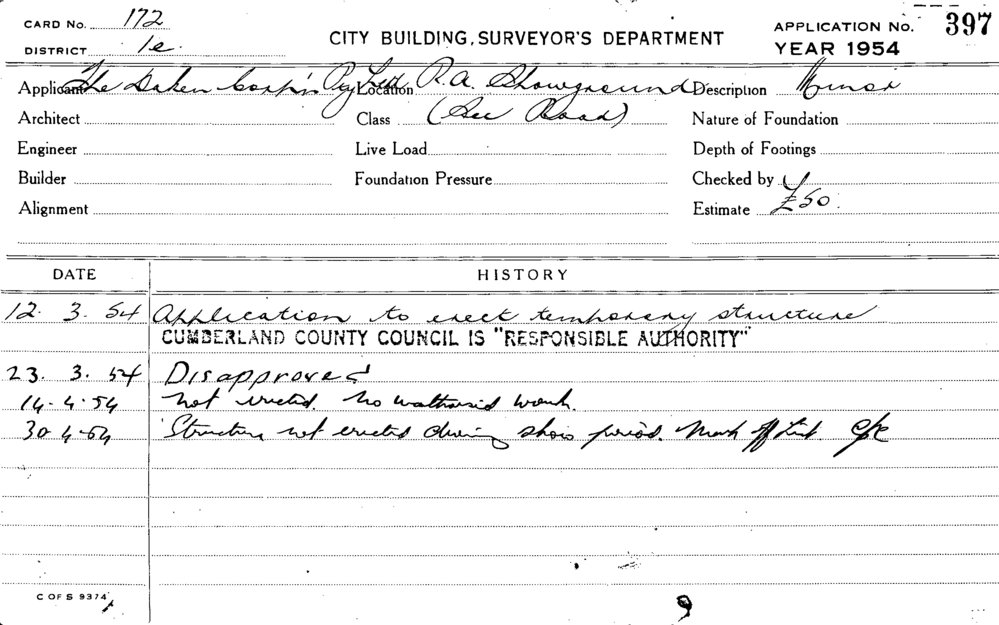 CARD No. 172
DISTRICT 1e
CITY BUILDING, SURVEYOR'S DEPARTMENT
APPLICATION No. 397
YEAR 1954
Applicant The Corp'n Pty Ltd Location R.A. Showground Description Minor
Architect Class (See Road) Nature of Foundation
Engineer Live Load Depth of Footings
Builder Foundation Pressure Checked by
Alignment Estimate £50.
DATE HISTORY
12. 3. 54 Application to erect temporary structure
CUMBERLAND COUNTY COUNCIL IS "RESPONSIBLE AUTHORITY"
23. 3. 54 Disapproved
14. 4. 54 Not erected. No work.
30. 4. 54 Structure not erected during show period. Mark off
C OF S 9374